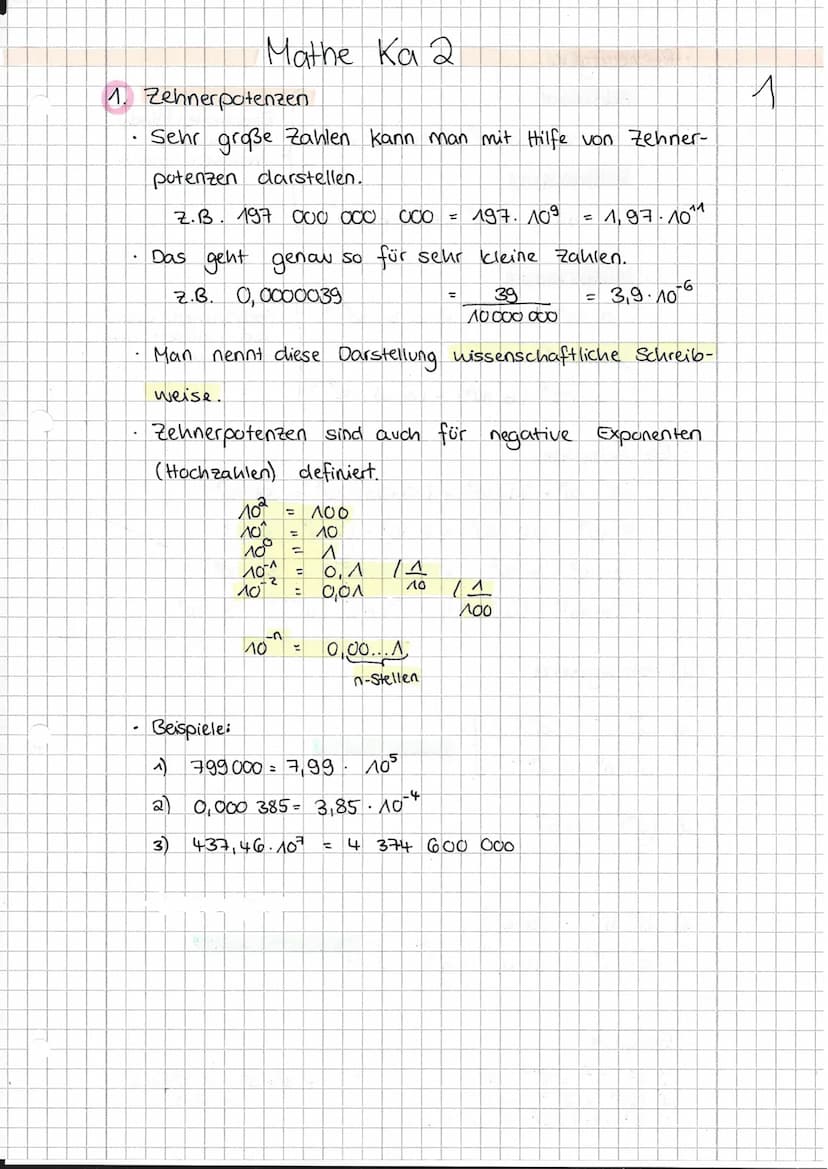 Mathe Ka 2
1
1. Zehnerpotenzen
· Sehr große Zahlen kann man mit Hilfe von Zehner-
potenzen darstellen.
z.B. 197 000 000 000 = 197 · 10⁹ = 1,97 · 10¹¹
· Das geht genau so für sehr kleine Zahlen.
z.B. 0,0000039 = 39/10 000 000 = 3,9 · 10⁻⁶
· Man nennt diese Darstellung wissenschaftliche Schreib-
weise.
· Zehnerpotenzen sind auch für negative Exponenten
(Hochzahlen) definiert.
10² = 100
10¹ = 10
10⁰ = 1
10⁻¹ = 0,1 / 1/10
10⁻² = 0,01 / 1/100
10⁻ⁿ = 0,00...1
n-Stellen
· Beispiele:
1) 799 000 = 7,99 · 10⁵
2) 0,000 385 = 3,85 · 10⁻⁴
3) 437,46 · 10⁷ = 4 374 600 000